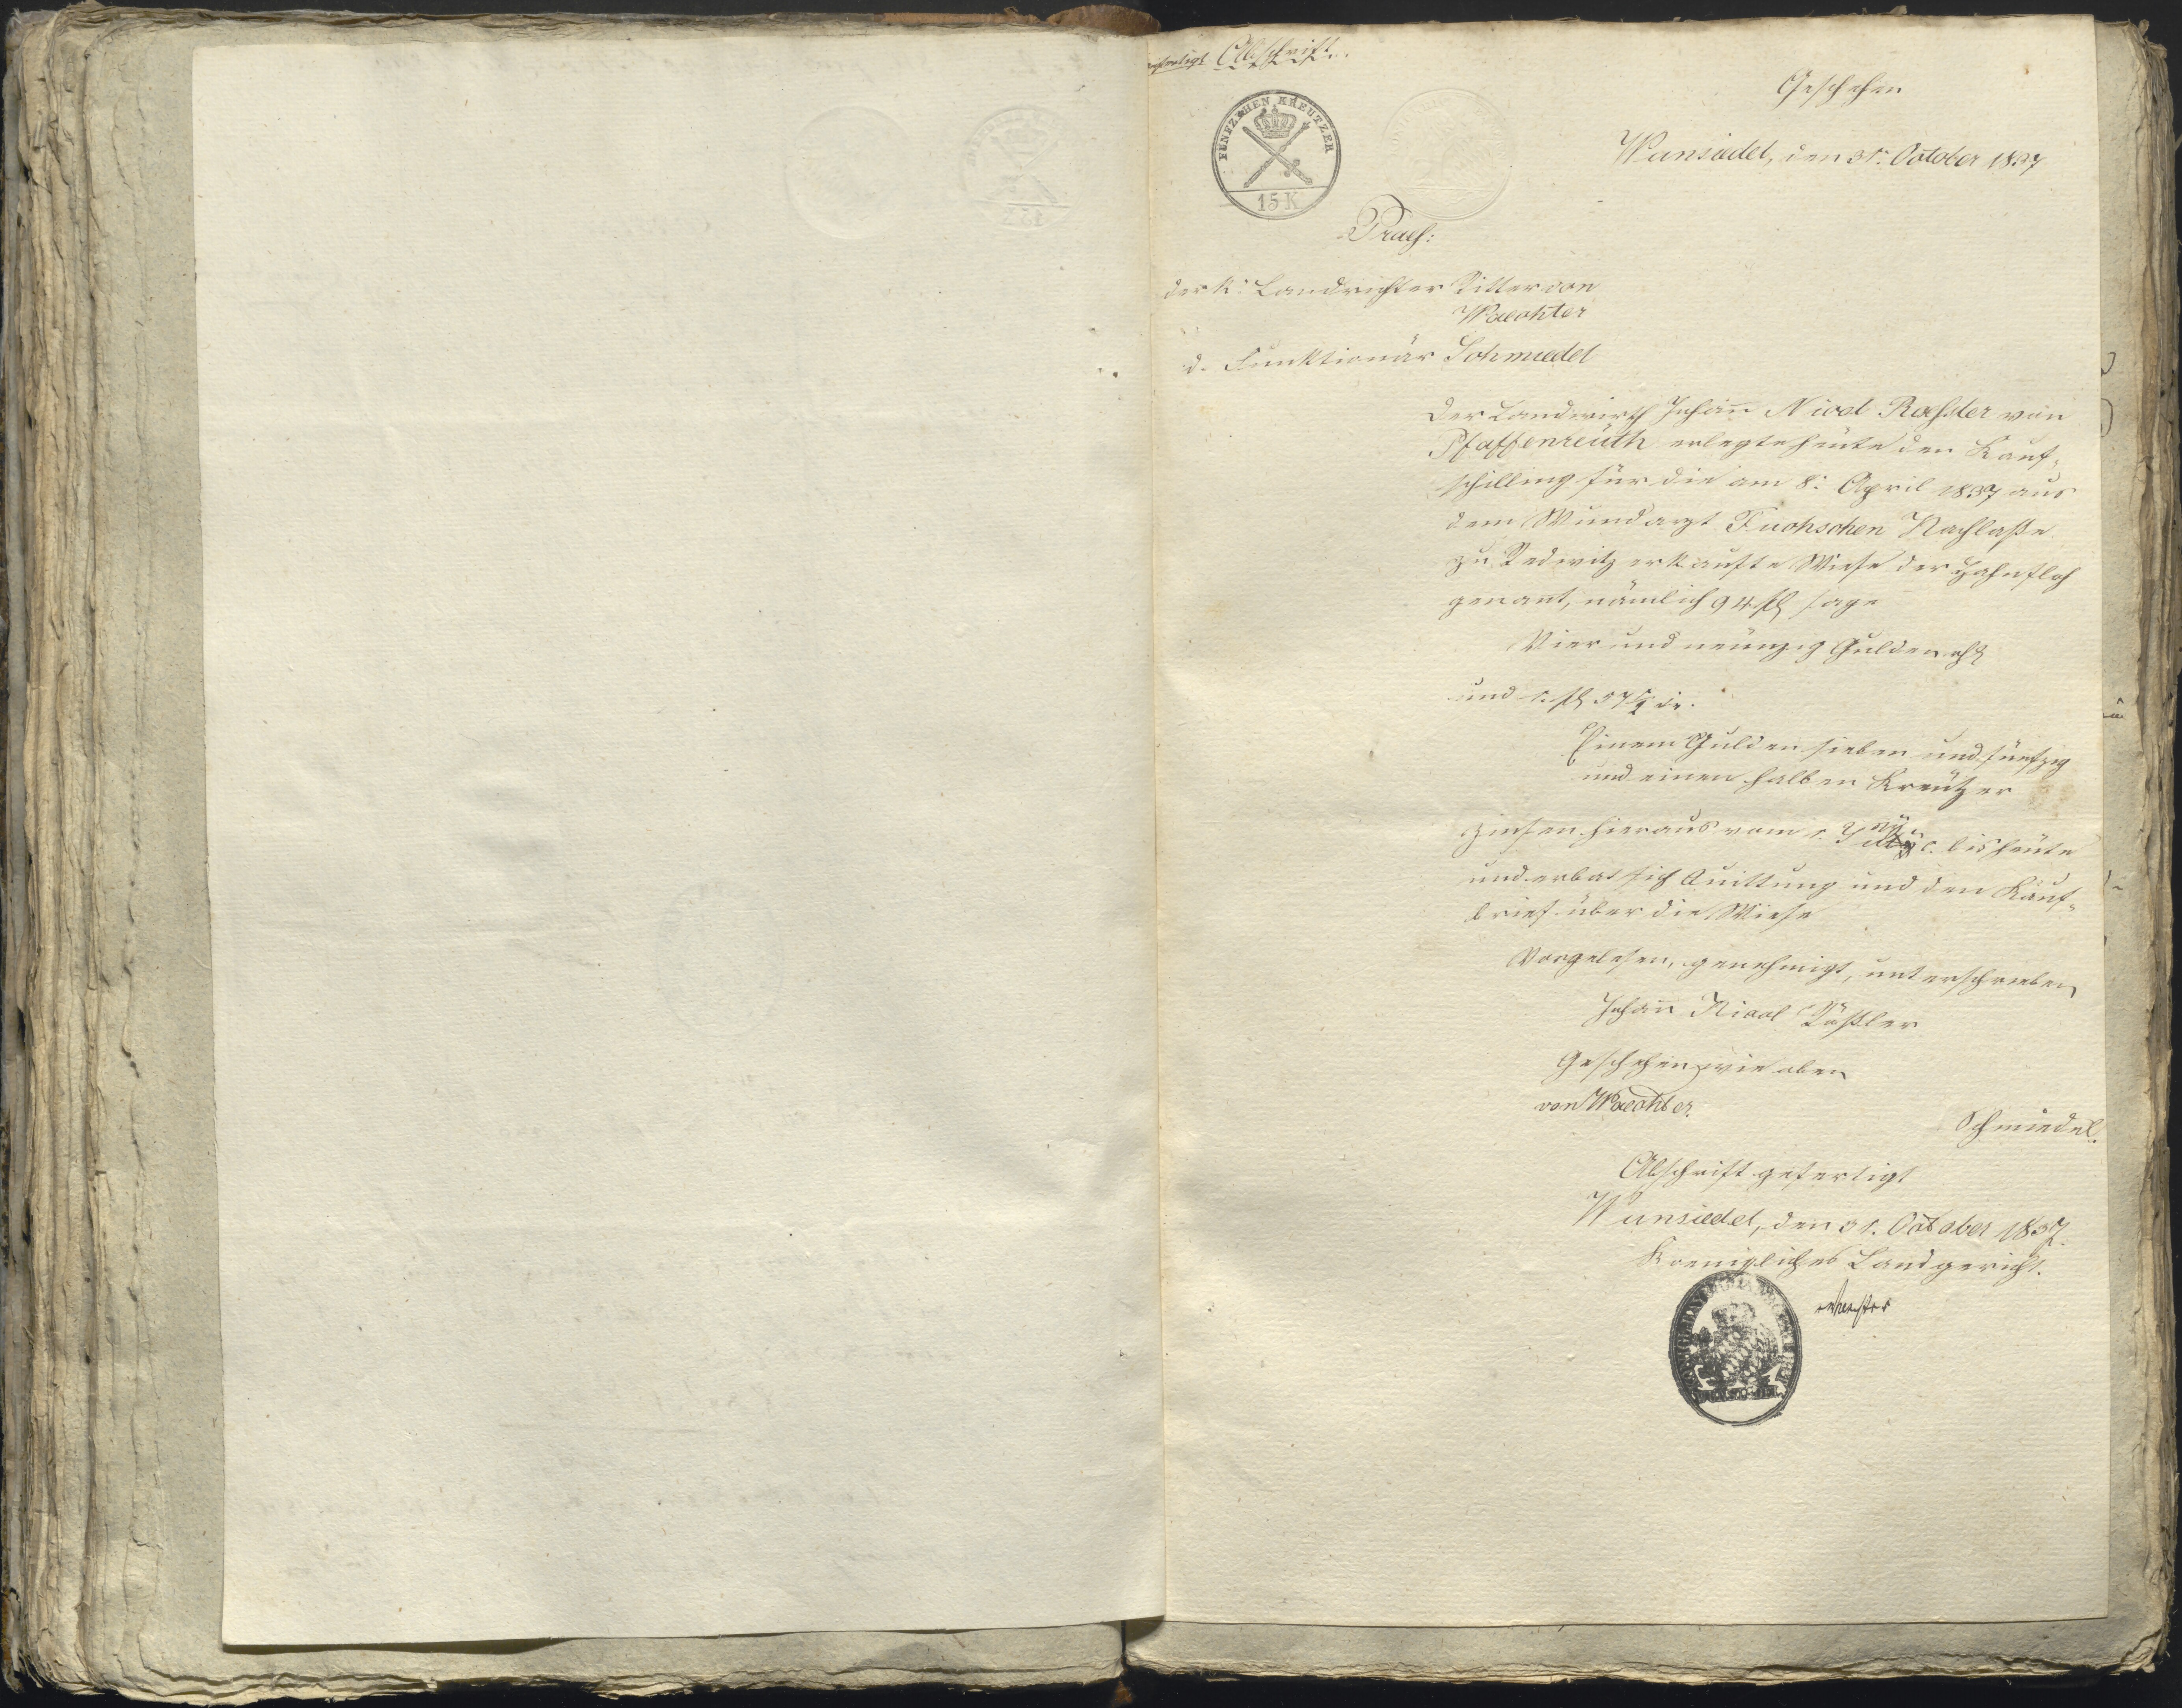 Abschrift.
FÜNFZEHEN KREUTZER
15 K
Geschehen
Wunsiedel, den 31. October 1837
Praes:
der K: Landrichter Ritter von
Waechter
d. Funktionär Schmiedel
Der Landwirth Johann Nicol Roessler von
Pfaffenreuth erlegte heute den Kauf=
schilling für die am 8. April 1837 aus
dem Wundarzt Fuchsschen Nachlaße
zu Redwitz erkaufte Wiese der
genannt, nämlich 94 fl sage
Vier und neunzig Gulden
und 1. fl 57½ xr.
Einem Gulden sieben und fünfzig
und einen halben Kreutzer
Zinsen hieraus vom 1. c. bis heute
und erbat sich Quittung und den Kauf=
brief über die Wiese
Vorgelesen, genehmigt, unterschrieben
Johann Nicol Rößler
Geschehen wie oben
von Waechter.
Schmiedel.
Abschrift gefertigt
Wunsiedel, den 31. October 1837.
Koenigliches Landgericht.